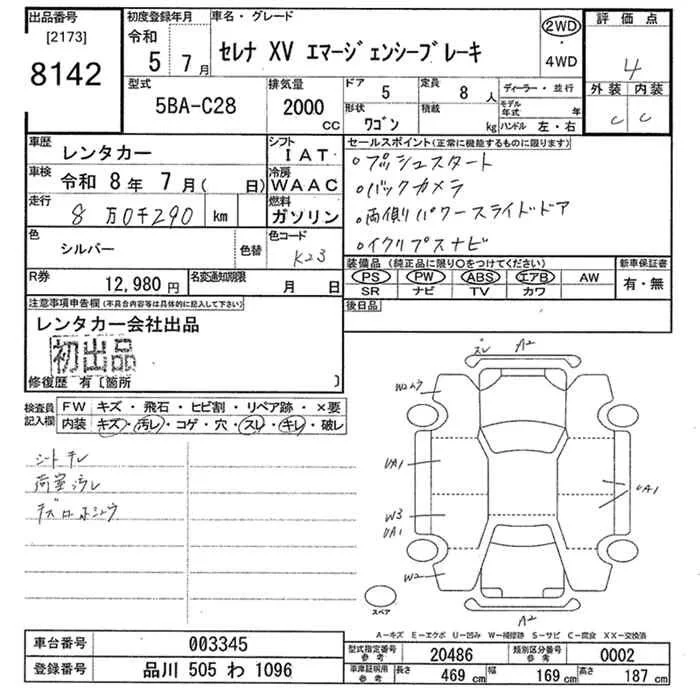 出品番号 初度登録年月 車名・グレード 評価点
[2173] 令和 5年 7月 セレナ XV エマージェンシーブレーキ 2WD・4WD 4
8142
外装 内装
C C
型式 排気量 ドア 定員 ディーラー・並行
5BA-C28 2000 CC 5 8人
形状 積載 モデル年式 年
ワゴン kg ハンドル 左・右
車歴 レンタカー シフト IAT
セールスポイント(正常に機能するものに限ります)
車検 令和 8年 7月( 日) 冷房 WAAC
走行 8万0千290 km 燃料 ガソリン
色 シルバー 色替 色コード K23
。プッシュスタート
。バックカメラ
。両側パワースライドドア
。イクリプスナビ
R券 12,980円 名変通知期限 月 日
装備品(純正品に限り○をつけてください) 新車保証書
PS PW ABS エアB AW 有・無
SR ナビ TV カワ
後日品
注意事項申告欄(不具合内容等は具体的に記入して下さい)
レンタカー会社出品
初出品
修復歴 有〔箇所 〕
検査員記入欄 FW キズ・飛石・ヒビ割・リペア跡・×要
内装 キズ・汚レ・コゲ・穴・スレ・キレ・破レ
シートキレ
荷室汚レ
スレ A2
W2
UA1
UA1
W3
UA1
W2
スペア
A2
A-キズ E-エクボ U-凹み W-補修跡 S-サビ C-腐食 XX-交換済
車台番号 003345
登録番号 品川 505 わ 1096
型式指定番号 参考 20486 類別区分番号 参考 0002
車庫証明用 参考 長さ 469 cm 幅 169 cm 高さ 187 cm